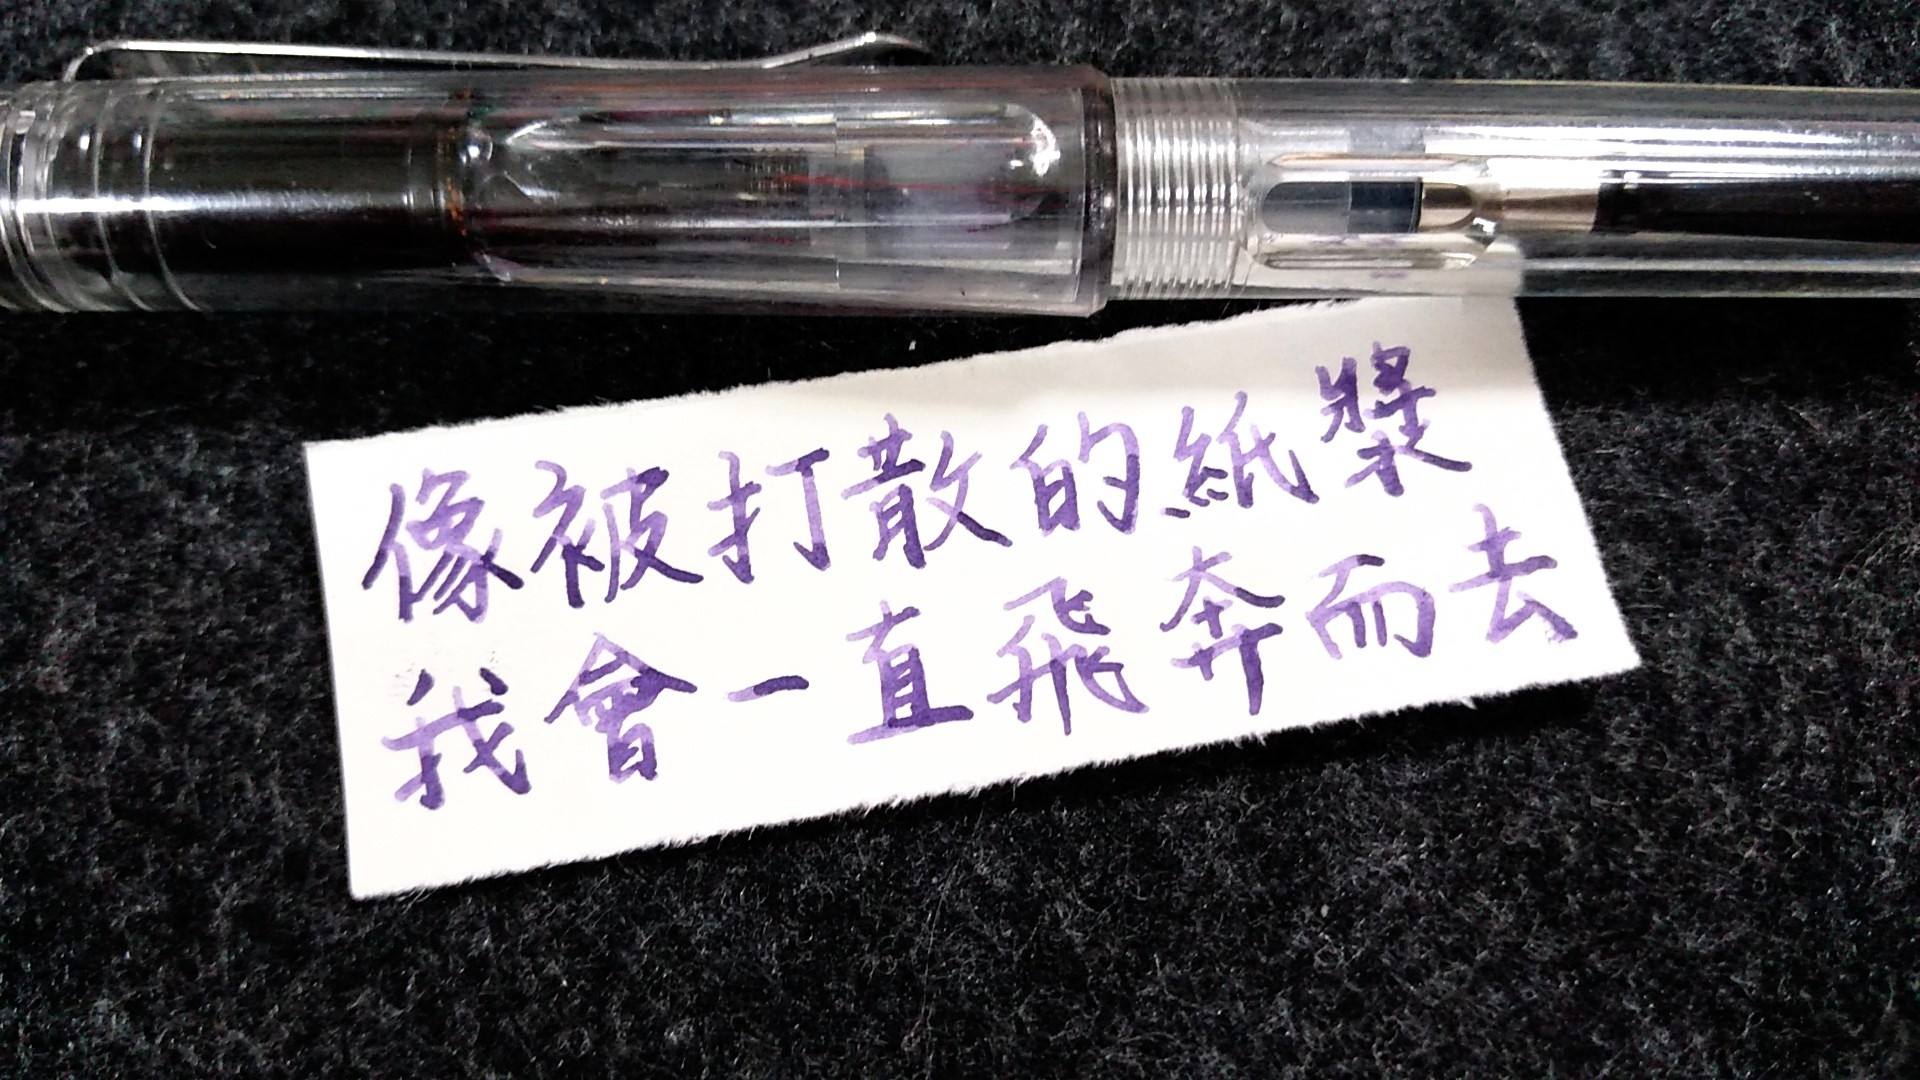 像被打散的紙漿
我會一直飛奔而去